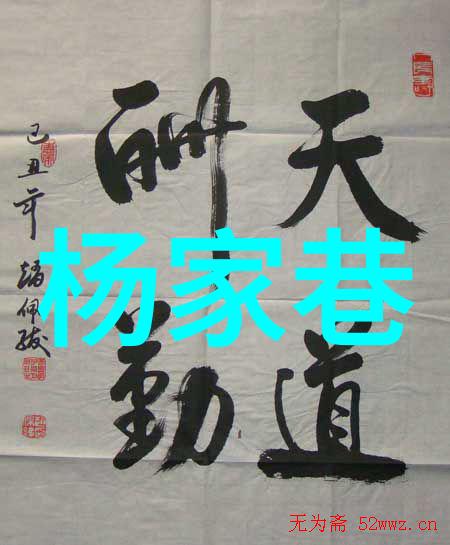 天道
酬勤
己丑年 佩
杨家巷
无为斋 52wwz.cn